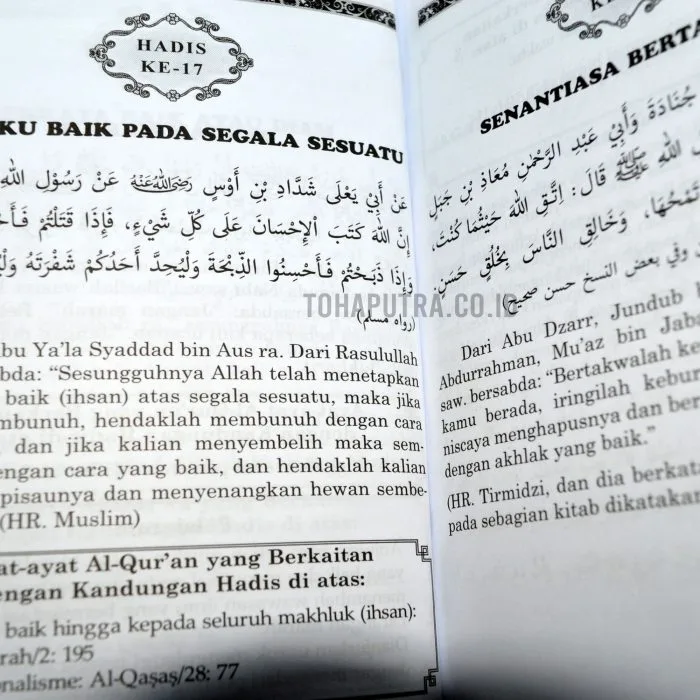 HADIS
KE-17
KU BAIK PADA SEGALA SESUATU
عَنْ أَبِي يَعْلَى شَدَّادِ بْنِ أَوْسٍ رَضِيَ اللهُ عَنْهُ عَنْ رَسُوْلِ اللهِ
إِنَّ اللهَ كَتَبَ الْإِحْسَانَ عَلَى كُلِّ شَيْءٍ، فَإِذَا قَتَلْتُمْ
وَإِذَا ذَبَحْتُمْ فَأَحْسِنُوا الذِّبْحَةَ وَلْيُحِدَّ أَحَدُكُمْ شَفْرَتَهُ
(رواه مسلم)
bu Ya'la Syaddad bin Aus ra. Dari Rasulullah
bda: “Sesungguhnya Allah telah menetapkan
baik (ihsan) atas segala sesuatu, maka jika
mbunuh, hendaklah membunuh dengan cara
dan jika kalian menyembelih maka sem-
engan cara yang baik, dan hendaklah kalian
pisaunya dan menyenangkan hewan sembe-
(HR. Muslim)
at-ayat Al-Qur'an yang Berkaitan
engan Kandungan Hadis di atas:
baik hingga kepada seluruh makhluk (ihsan):
rah/2: 195
onalisme: Al-Qaṣaṣ/28: 77
TOHAPUTRA.CO.I
KE
SENANTIASA BERTA
جُنَادَةَ وَأَبِي عَبْدِ الرَّحْمٰنِ مُعَاذِ بْنِ جَبَلٍ
اللهِ ﷺ قَالَ: اِتَّقِ اللهَ حَيْثُمَا كُنْتَ،
تَمْحُهَا، وَخَالِقِ النَّاسَ بِخُلُقٍ حَسَنٍ.
وفي بعض النسخ حسن صحيح)
Dari Abu Dzarr, Jundub b
Abdurrahman, Mu'az bin Jaba
saw. bersabda: “Bertakwalah ke
kamu berada, iringilah kebur
niscaya menghapusnya dan ber
dengan akhlak yang baik.”
(HR. Tirmidzi, dan dia berkat
pada sebagian kitab dikatakan